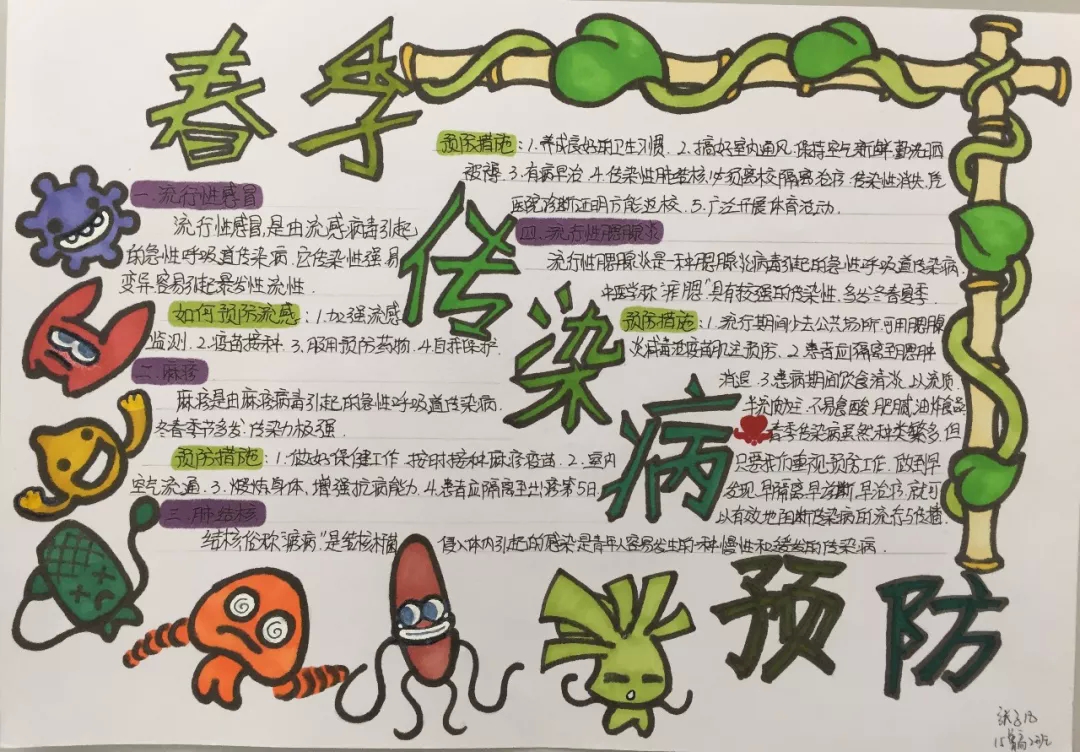 春季
传染病
预防
一.流行性感冒
流行性感冒,是由流感病毒引起
的急性呼吸道传染病.它传染性强,易
变异,容易引起暴发性流性.
如何预防流感:1.加强流感
监测.2.疫苗接种.3.服用预防药物.4.自我保护.
二.麻疹
麻疹是由麻疹病毒引起的急性呼吸道传染病.
冬春季节多发,传染力极强.
预防措施:1.做好保健工作,按时接种麻疹疫苗.2.室内
空气流通.3.锻炼身体,增强抗病能力.4.患者应隔离至出疹第5日.
三.肺结核
结核俗称“痨病”是结核杆菌侵入体内引起的感染是青年人容易发生的一种慢性和缓发的传染病.
预防措施:1.养成良好的卫生习惯.2.搞好室内通风,保持空气新鲜勤洗晒
被褥.3.有病早治.4.传染性肺结核必须离校隔离治疗.传染性消失,凭
医院诊断证明方能返校.5.广泛开展体育活动.
四.流行性腮腺炎
流行性腮腺炎是一种腮腺炎病毒引起的急性呼吸道传染病.
中医学称“痄腮”具有较强的传染性.多发冬春夏季.
预防措施:1.流行期间少去公共场所.可用腮腺
炎减毒活疫苗肌注预防.2.患者应隔离至腮肿
消退.3.患病期间饮食清淡,以流质.
半流质为主.不易食酸,肥腻,油炸食品
春季传染病虽然种类繁多,但
只要我们重视预防工作,做到早
发现,早隔离,早诊断,早治疗,就可
以有效地阻断传染病的流行与传播.
15高2班